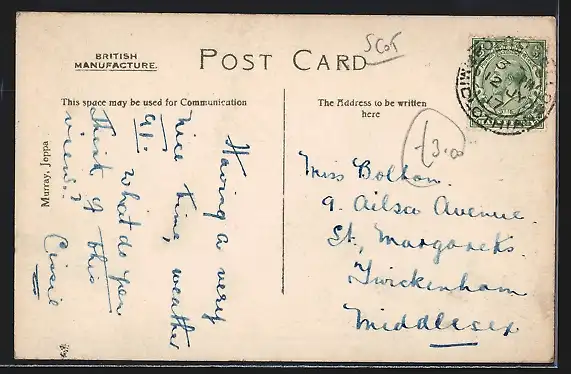 BRITISH
MANUFACTURE.
POST CARD
Scot
This space may be used for Communication
The Address to be written
here
£3.00
Murray, Jeppa
Having a very
nice time, weather
A1. What do you
think of this
view?
Cissie
Miss Bolton.
9. Ailsa Avenue.
St. Margarets.
Twickenham
Middlesex